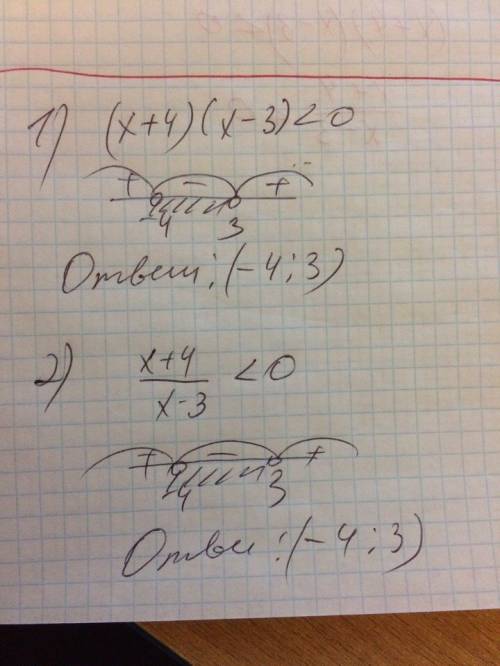 1) (x+4)(x-3)<0
+ - +
-4 3
Ответ: (-4; 3)
2) x+4 <0
x-3
+ - +
-4 3
Ответ: (-4; 3)